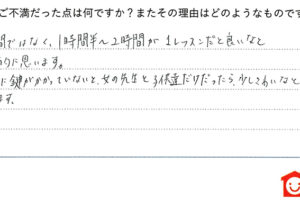 ご不満だった点は何ですか？またその理由はどのようなもので
間ではなく、1時間半〜2時間が1レッスンだと良いなと
りに思います。
に鍵がかかっていないと、女の先生と子供達だけだったら、少しこわいなと
ます。